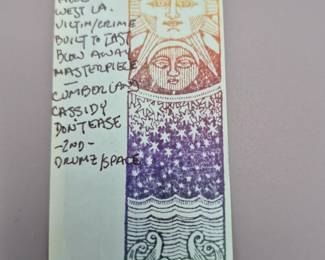 WEST L.A.
VICTIM/CRIME
BUILT TO LAST
BLOW AWAY
MASTERPIECE
—
CUMBERLAND
CASSIDY
DON'T EASE
-2ND-
DRUMZ/SPACE